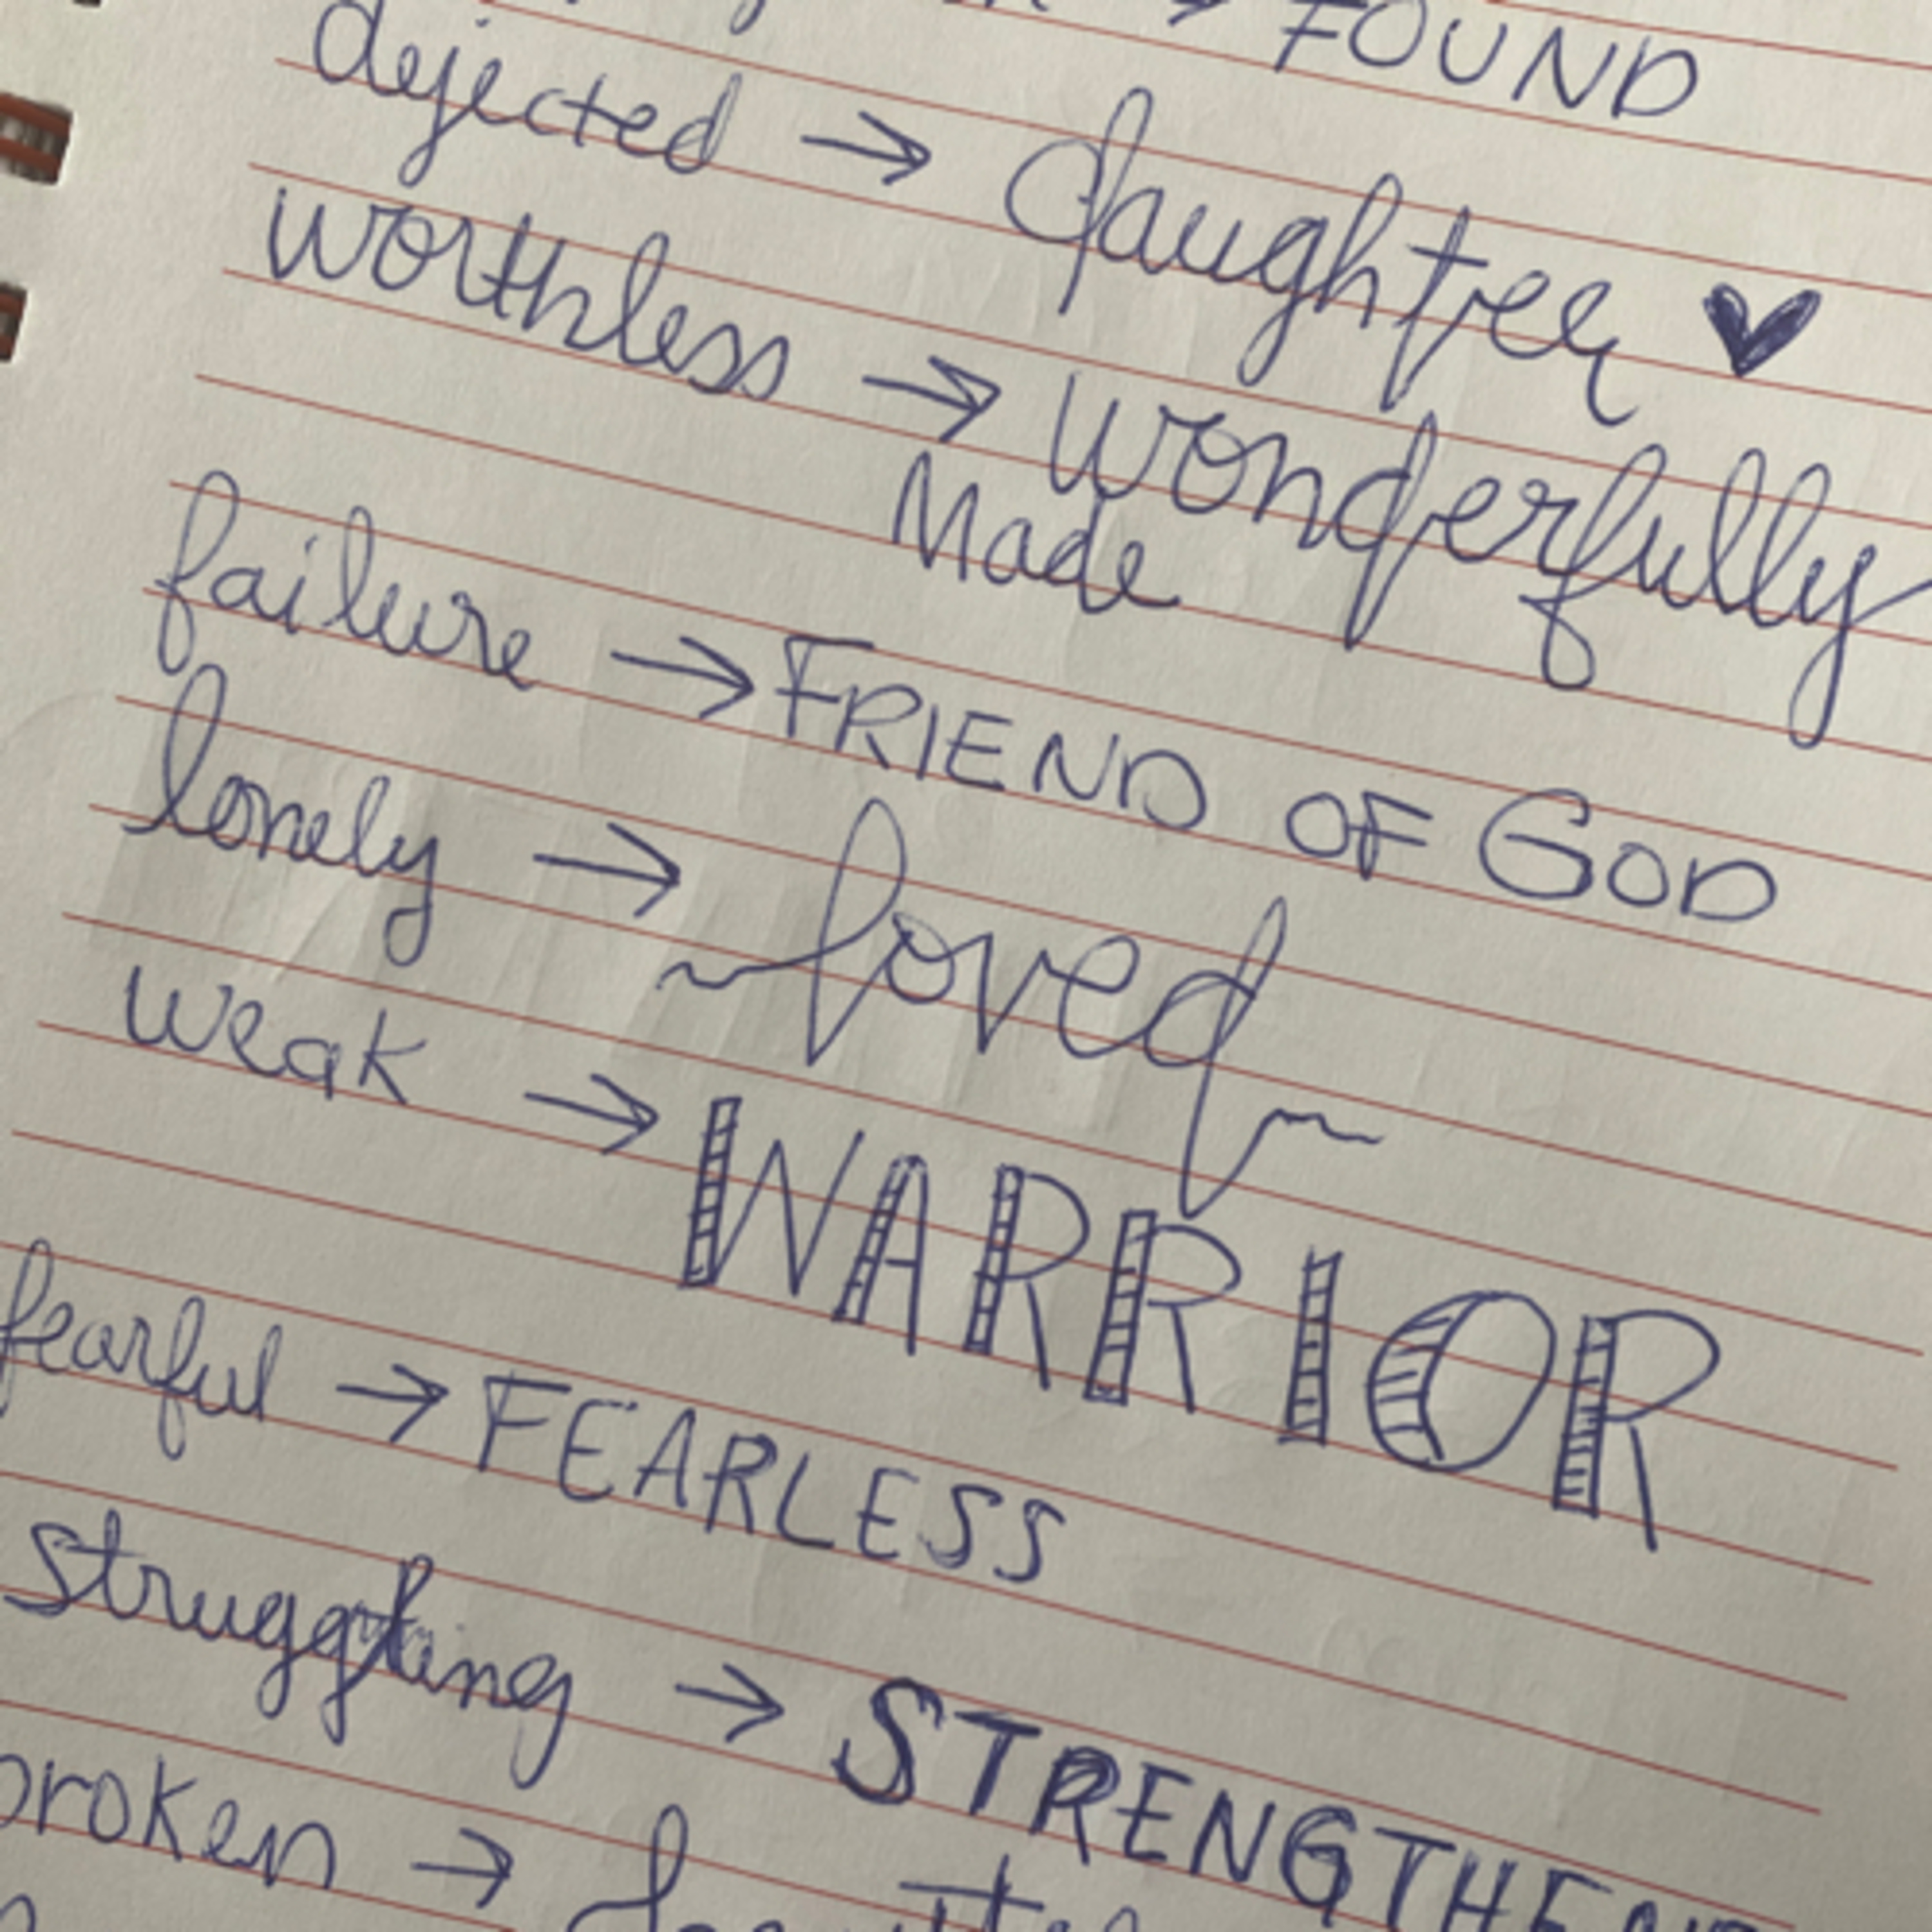 → FOUND
dejected → daughter ♥
worthless → wonderfully
Made
failure → FRIEND OF GOD
lonely → loved
weak → WARRIOR
fearful → FEARLESS
struggling → STRENGTHEN
broken →